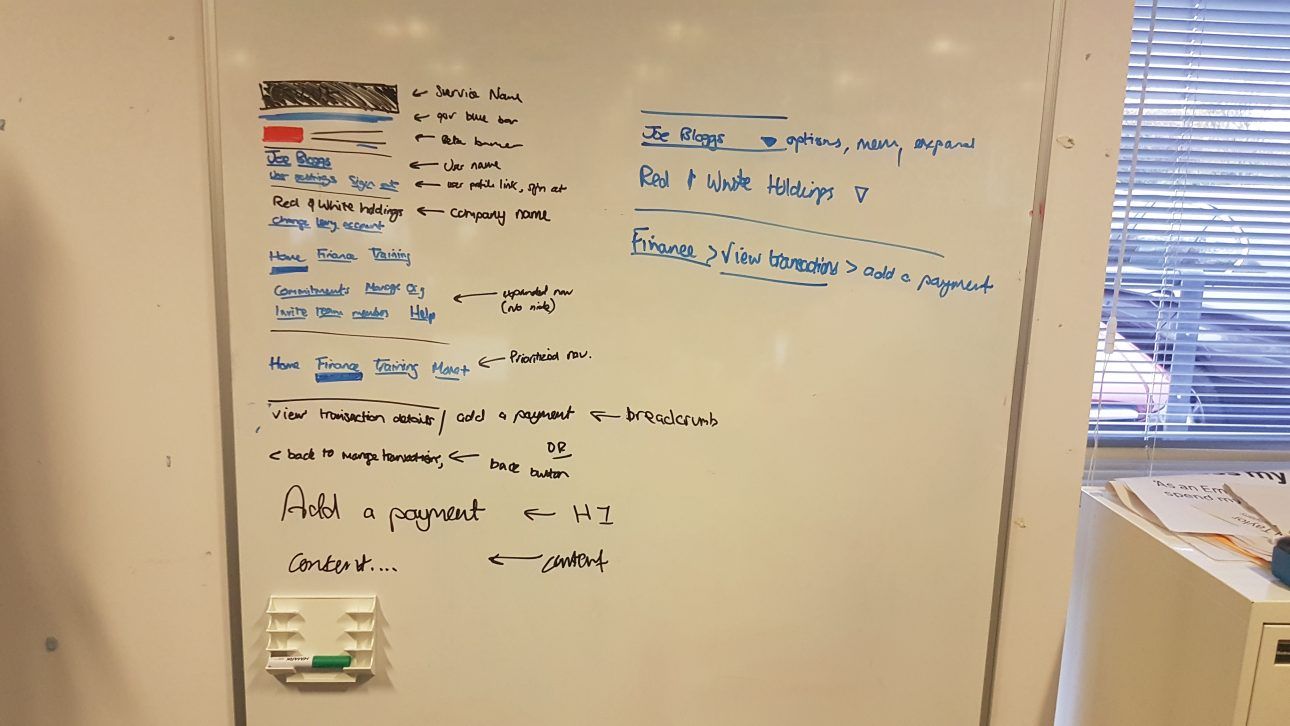 ← Service Name
← gov blue bar
← Beta banner
Joe Bloggs ← User name
User settings Sign out ← user profile link, sign out
Red & White holdings ← company name
change levy account
Home Finance Training
Commitments Manage Org ← expanded nav
(no nide)
Invite team member Help
Home Finance Training More + ← Prioritised nav.
view transaction details / add a payment ← breadcrumb
OR
< back to mange transactions, ← back button
Add a payment ← H1
Content.... ← content
Joe Bloggs ▼ options, menu, expand
Red & White Holdings ▽
Finance > View transactions > add a payment
s my
'As an Em
spend m
Taylor